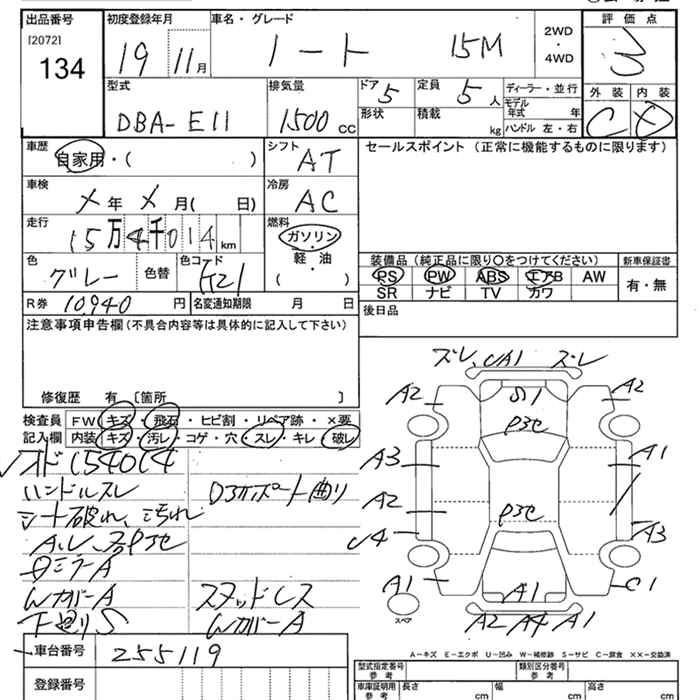 出品番号 初度登録年月 車名・グレード 評価点
[2072] 134 19年 11月 ノート 15M 2WD・4WD 3
型式 排気量 ドア 5 定員 5人 ディーラー・並行 外装 内装
DBA-E11 1500cc 形状 積載 kg モデル年式 年 C D
ハンドル 左・右
車歴 自家用・( ) シフト AT セールスポイント (正常に機能するものに限ります)
車検 メ年メ月( 日) 冷房 AC
走行 15万4千014km 燃料 ガソリン・軽油・( )
色 グレー 色替 色コード K21 装備品 (純正品に限り○をつけてください) 新車保証書
PS PW ABS エアB AW 有・無
SR ナビ TV カワ
R券 10,940円 名変通知期限 月 日 後日品
注意事項申告欄 (不具合内容等は具体的に記入して下さい)
修復歴 有 [箇所 ]
検査員 FW キズ・飛石・ヒビ割・リペア跡・×要
記入欄 内装 キズ・汚レ・コゲ・穴・スレ・キレ・破レ
154014
ハンドルスレ
シート破れ、汚れ
WカバーA スタッドレス
下廻りS WカバーA
ズレ、 ズレ
A2 A2
A3 A1
A2
A3
A1 A1 C1
スペア A2 A4 A1
A-キズ E-エクボ U-凹み W-補修跡 S-サビ C-腐食 ××-交換済
車台番号 255119 型式指定番号 参考 類別区分番号 参考
登録番号 車庫証明用 参考 長さ cm 幅 cm 高さ cm